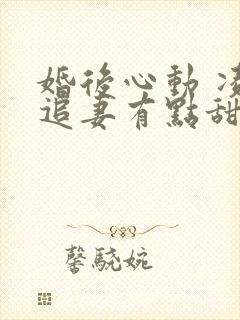 婚後心動 凌
追妻有點甜
馨驍婉